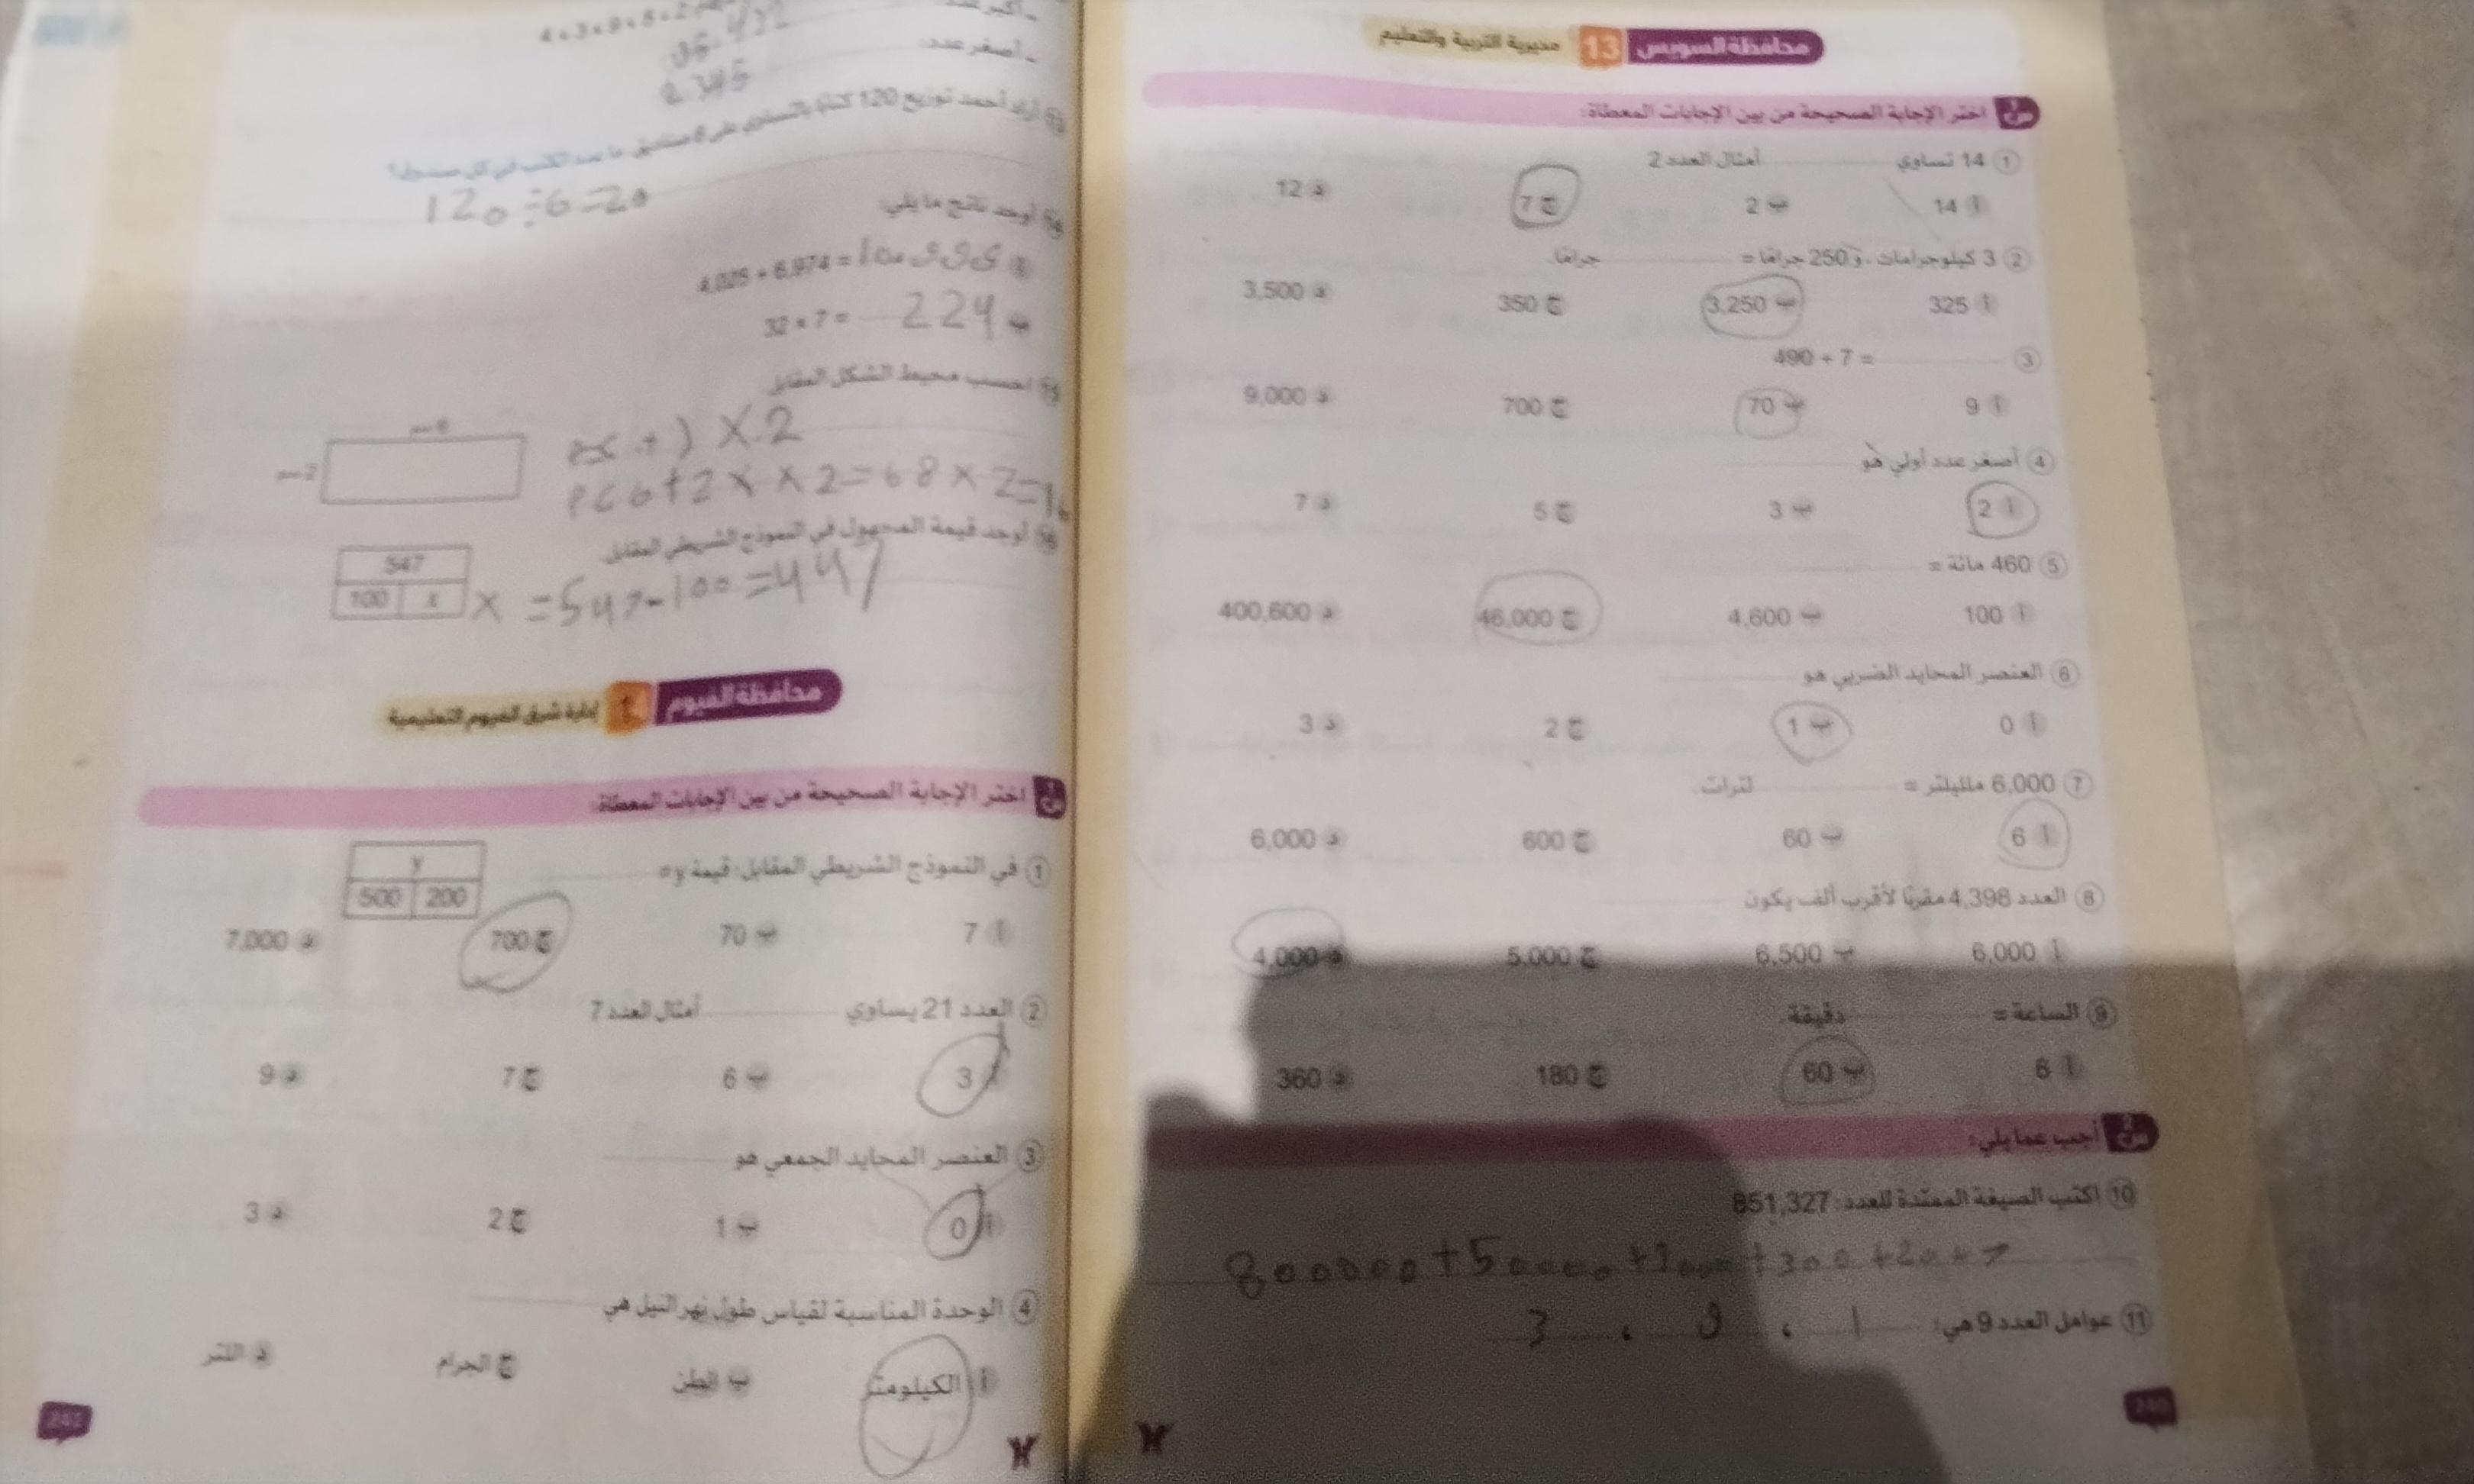 محافظة السويس 13 مديرية التربية والتعليم
اختر الإجابة الصحيحة من بين الإجابات المعطاة:
1 14 تساوي أمثال العدد 2
أ 14 ب 2 ج 7 د 12
2 3 كيلوجرامات، و250 جرامًا = جرامًا.
أ 325 ب 3,250 ج 350 د 3,500
3 490 ÷ 7 =
أ 9 ب 70 ج 700 د 9,000
4 أصغر عدد أولي هو
أ 2 ب 3 ج 5 د 7
5 460 مائة =
أ 100 ب 4,600 ج 46,000 د 400,600
6 العنصر المحايد الضربي هو
أ 0 ب 1 ج 2 د 3
7 6,000 ملليلتر = لترات.
أ 6 ب 60 ج 600 د 6,000
8 العدد 4,398 مقربًا لأقرب ألف يكون
أ 6,000 ب 6,500 ج 5,000 د 4,000
9 الساعة = دقيقة.
أ 6 ب 60 ج 180 د 360
أجب عما يلي:
10 اكتب الصيغة الممتدة للعدد: 851,327
800000+50000+1000+300+20+7
11 عوامل العدد 9 هي: 1 ، 9 ، 3
240
- أصغر عدد:
2345
أراد أحمد توزيع 120 كتابًا بالتساوي على 6 صناديق، ما عدد الكتب في كل صندوق؟
120÷6=20
أوجد ناتج ما يلي:
4,025 + 6,974 = 10.999
ب 32 × 7 = 224
احسب محيط الشكل المقابل.
) × 2
أوجد قيمة المجهول في النموذج الشريطي المقابل.
547
100 x
x =547-100=447
محافظة الفيوم إدارة شرق الفيوم التعليمية
اختر الإجابة الصحيحة من بين الإجابات المعطاة:
1 في النموذج الشريطي المقابل: قيمة y=
y
500 200
أ 7 ب 70 ج 700 د 7,000
2 العدد 21 يساوي أمثال العدد 7
أ 3 ب 6 ج 7 د 9
3 العنصر المحايد الجمعي هو
أ 0 ب 1 ج 2 د 3
4 الوحدة المناسبة لقياس طول نهر النيل هي
أ الكيلومتر ب الطن ج الجرام د اللتر